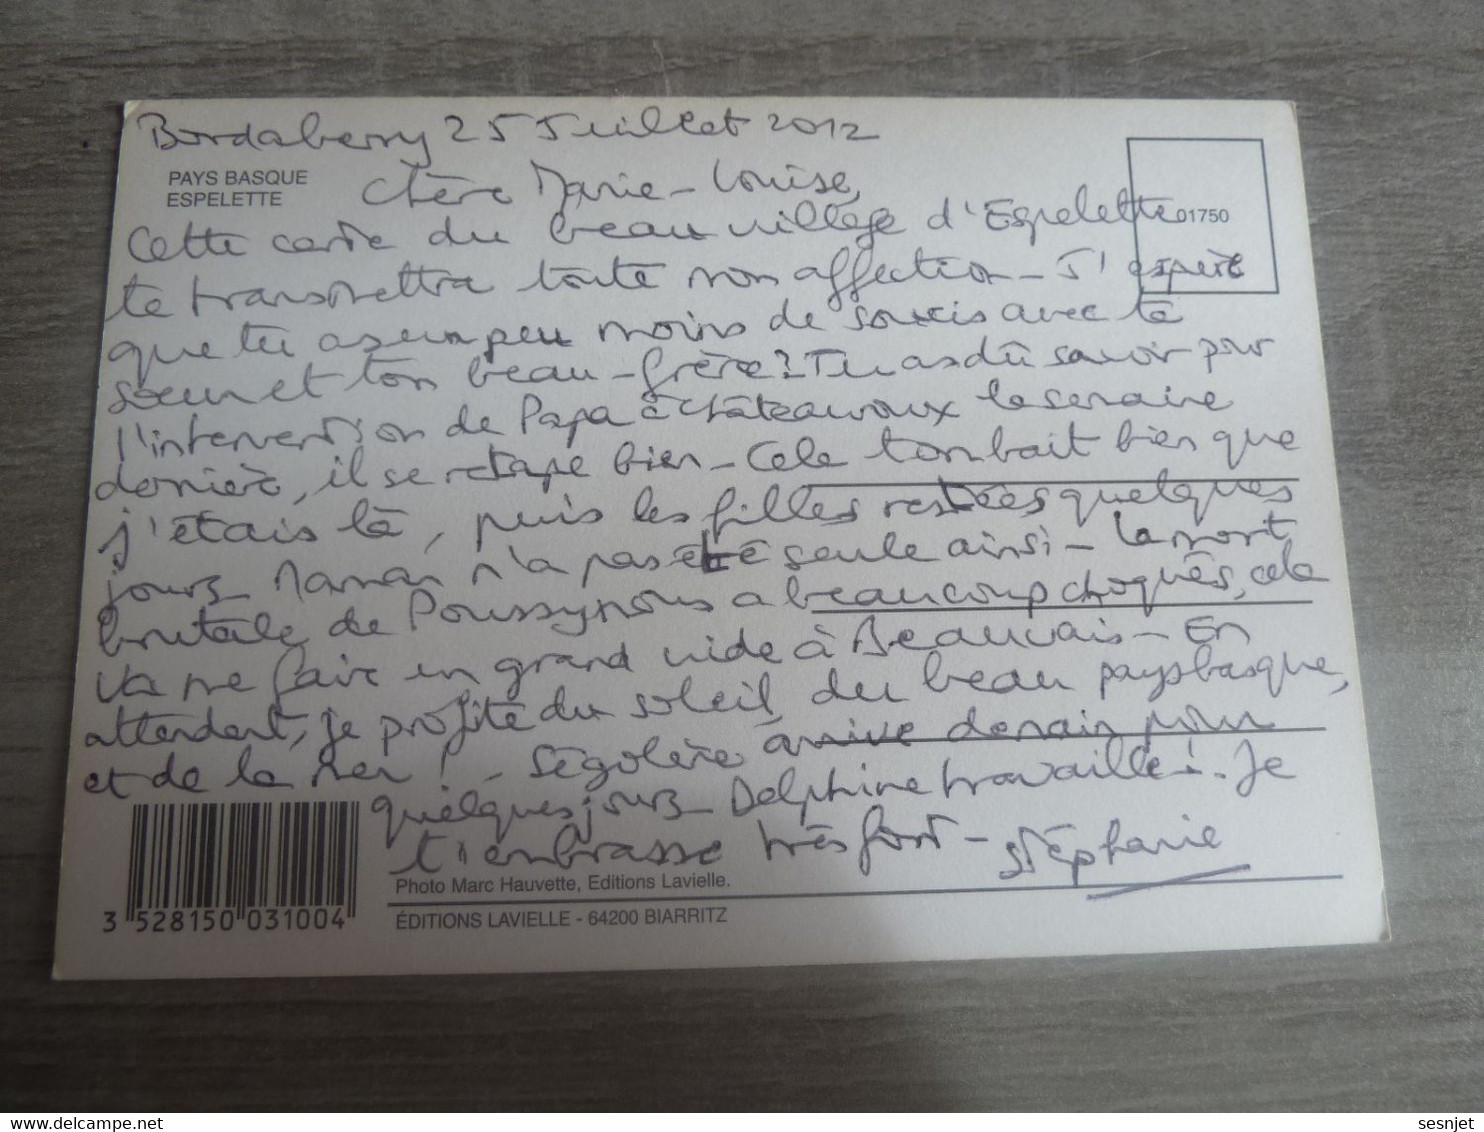 Bordaberry 25 Juillet 2012
PAYS BASQUE
ESPELETTE
Chère Marie-Louise,
Cette carte du beau village d'Espelette
01750
te transmettra toute mon affection - J'espère
que tu as un peu moins de soucis avec ta
soeur et ton beau-frère? Tu as dû savoir pour
l'intervention de Papa à Châteauroux la semaine
dernière, il se retape bien - Cela tombait bien que
j'étais là, puis les filles restées quelques
jours - Maman n'a pas été seule ainsi - La mort
brutale de Poussy nous a beaucoup choqués, cela
va me faire un grand vide à Beauvais - En
attendant, je profite du soleil, du beau pays basque,
et de la mer! - Ségolène arrive demain pour
quelques jours - Delphine travaille! - Je
t'embrasse très fort - Stéphanie
Photo Marc Hauvette, Editions Lavielle.
ÉDITIONS LAVIELLE - 64200 BIARRITZ
3 528150 031004
sesnjet